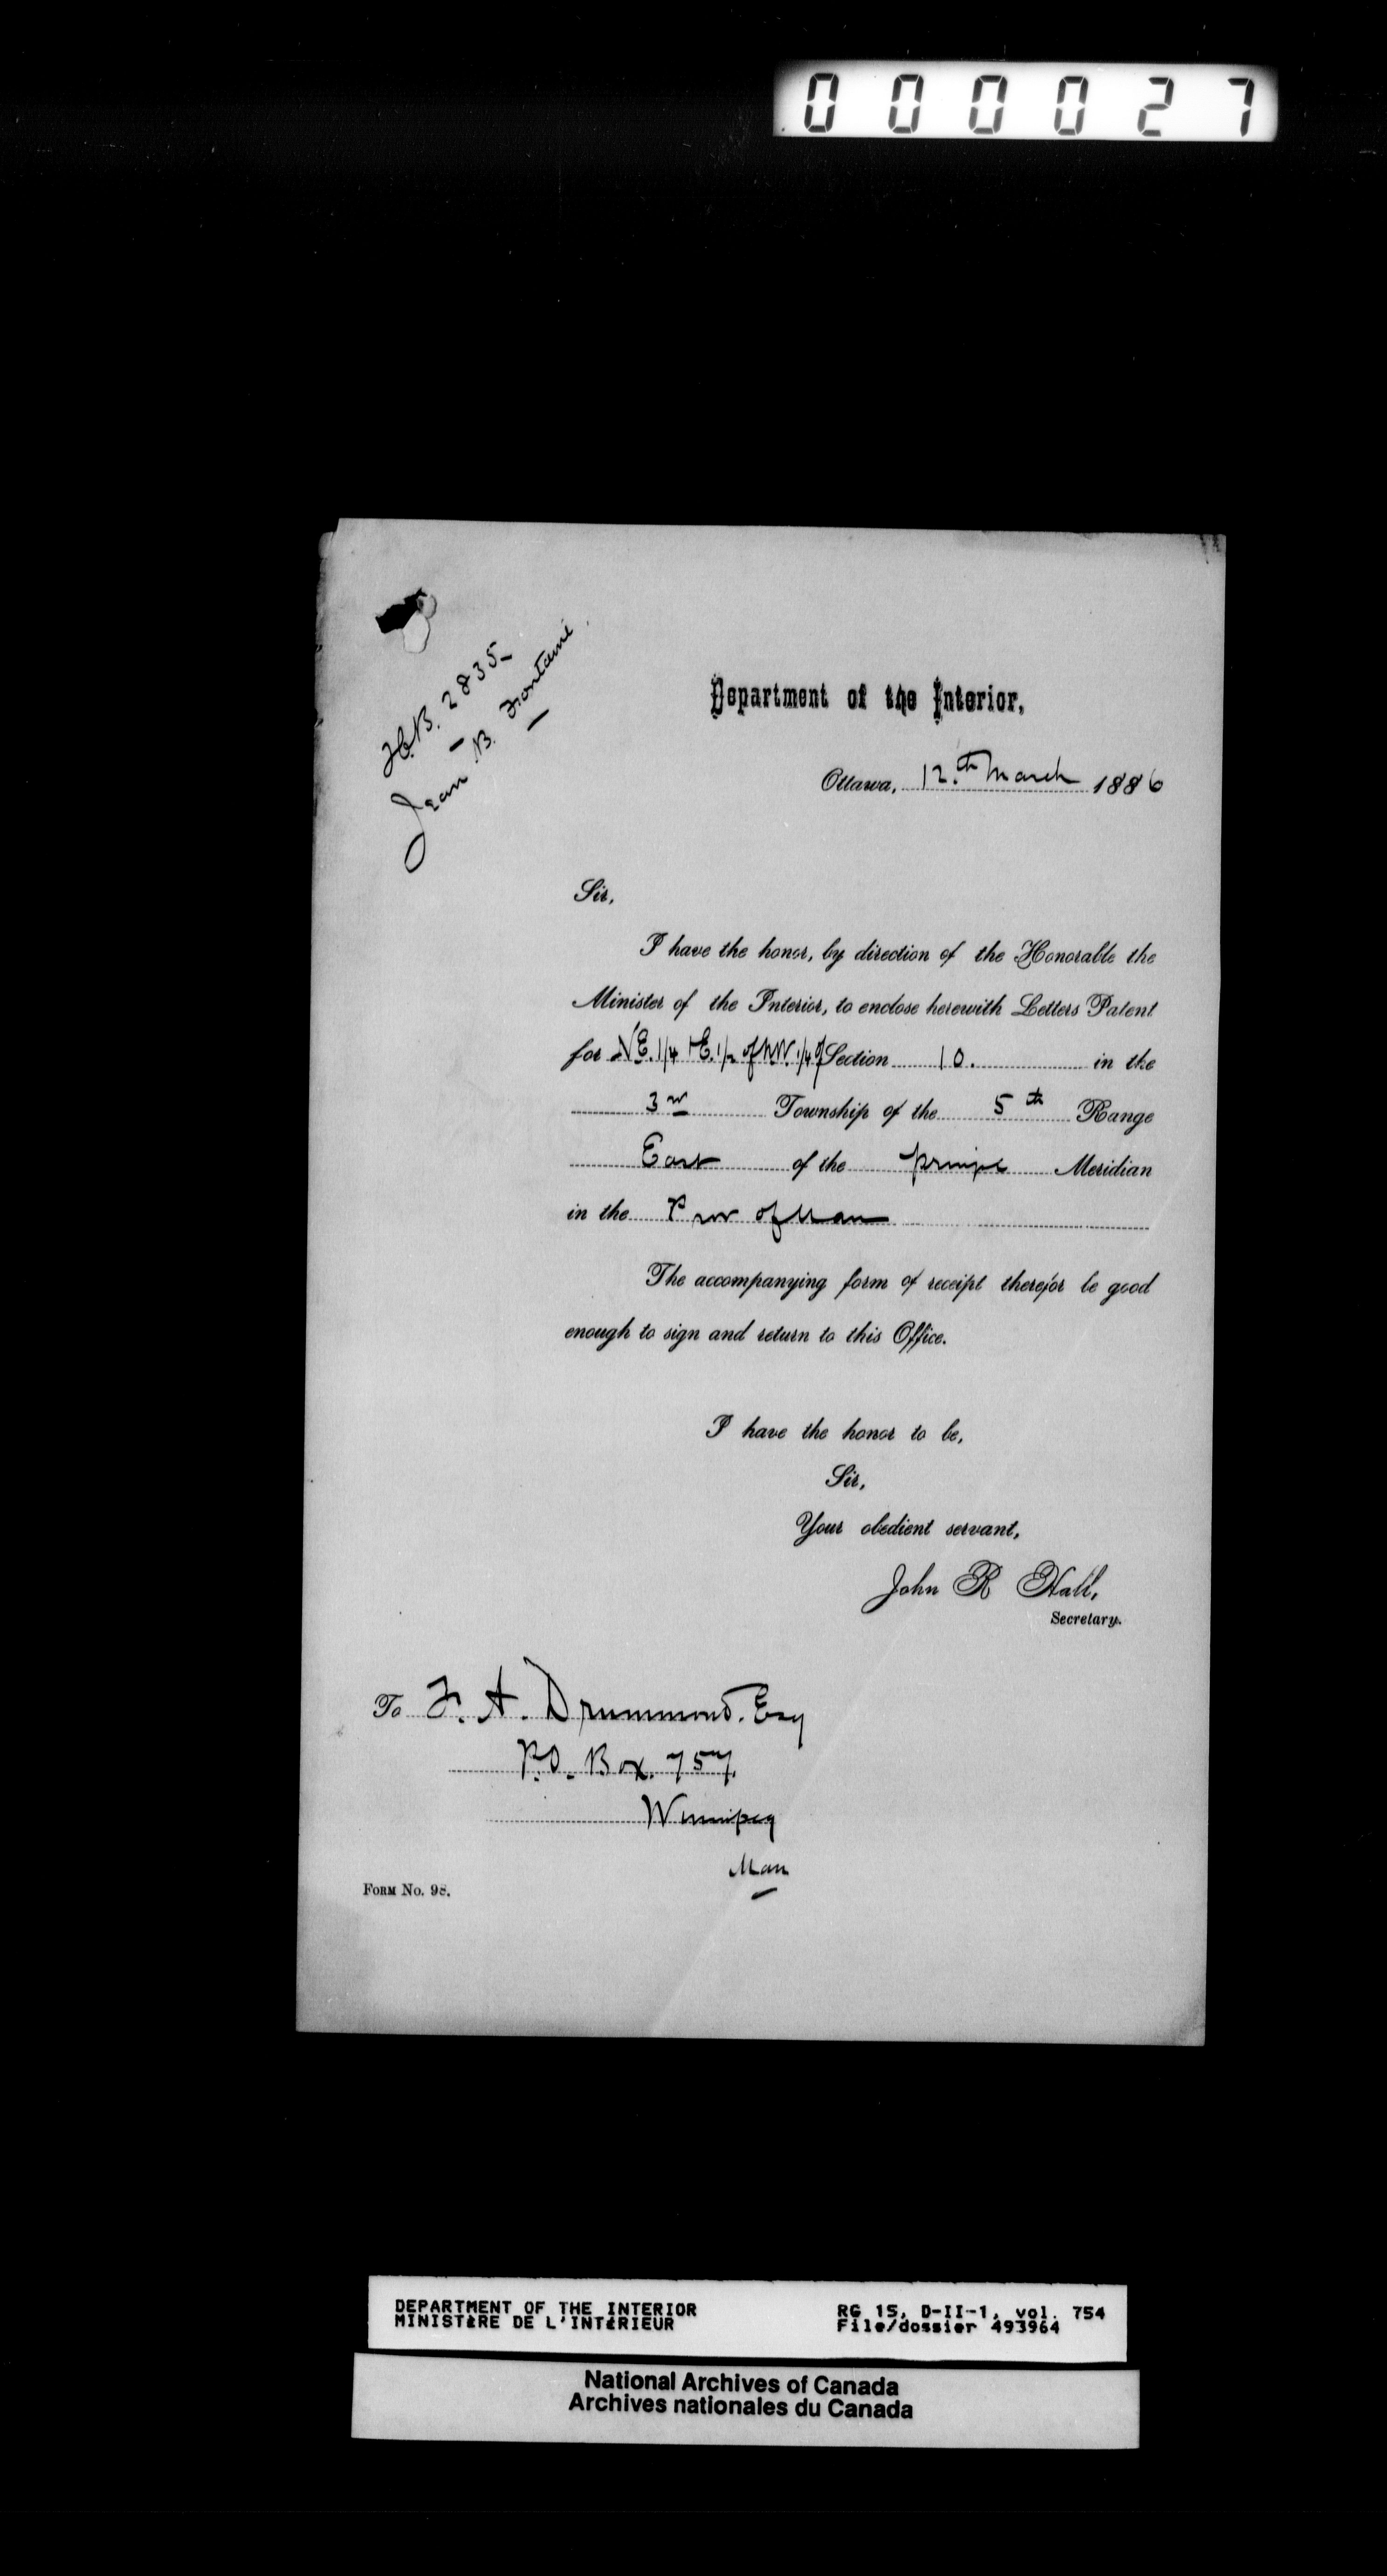 000027
H.B. 2835
Jean B. Fontaine
Department of the Interior,
Ottawa, 12.th March 1886
Sir,
I have the honor, by direction of the Honorable the
Minister of the Interior, to enclose herewith Letters Patent
for N.E. 1/4 + E. 1/2 of N.W. 1/4 of Section 10. in the
3rd Township of the 5th Range
East of the Meridian
in the Prov of Man
The accompanying form of receipt therefor be good
enough to sign and return to this Office.
I have the honor to be,
Sir,
Your obedient servant,
John R Hall,
Secretary.
To F. A. Drummond. Esq
P.O. Box. 757.
Winnipeg
Man
FORM No. 98.
DEPARTMENT OF THE INTERIOR RG 15, D-II-1, vol. 754
MINISTÈRE DE L'INTÉRIEUR File/dossier 493964
National Archives of Canada
Archives nationales du Canada